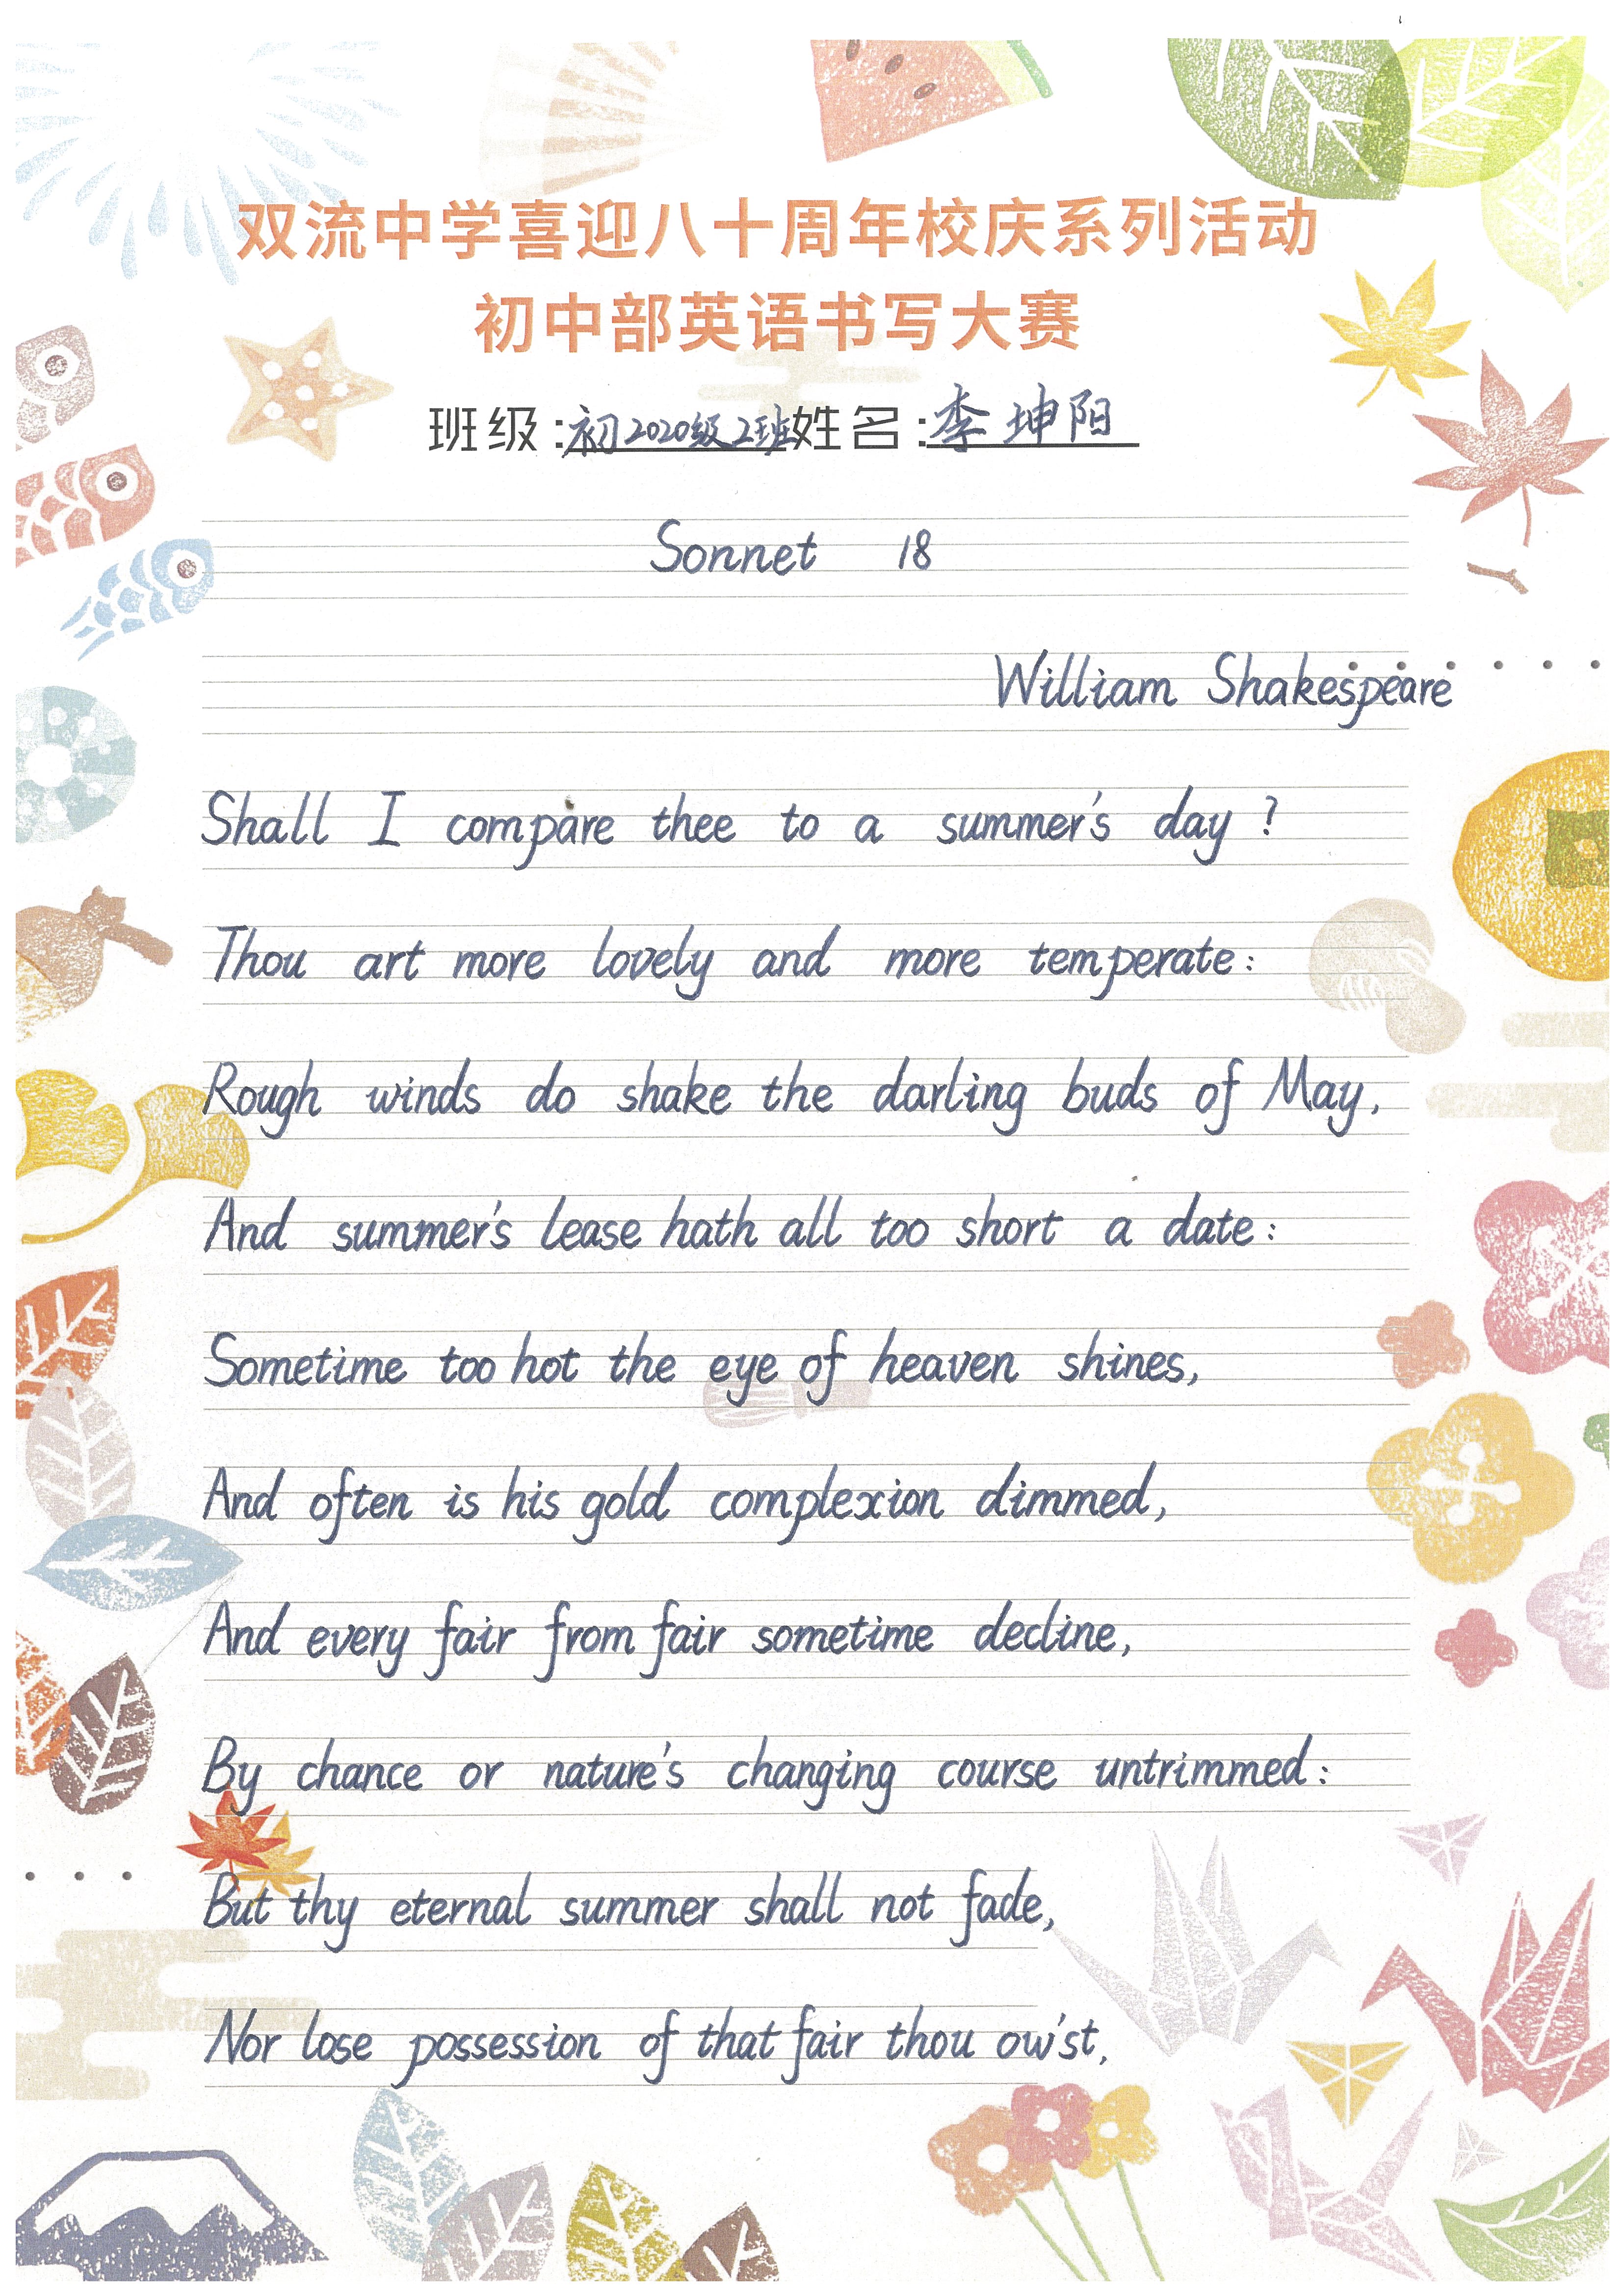 双流中学喜迎八十周年校庆系列活动
初中部英语书写大赛
班级:初2020级2班姓名:李坤阳
Sonnet 18
William Shakespeare
Shall I compare thee to a summer's day ?
Thou art more lovely and more temperate:
Rough winds do shake the darling buds of May,
And summer's lease hath all too short a date:
Sometime too hot the eye of heaven shines,
And often is his gold complexion dimmed,
And every fair from fair sometime decline,
By chance or nature's changing course untrimmed:
But thy eternal summer shall not fade,
Nor lose possession of that fair thou ow'st,